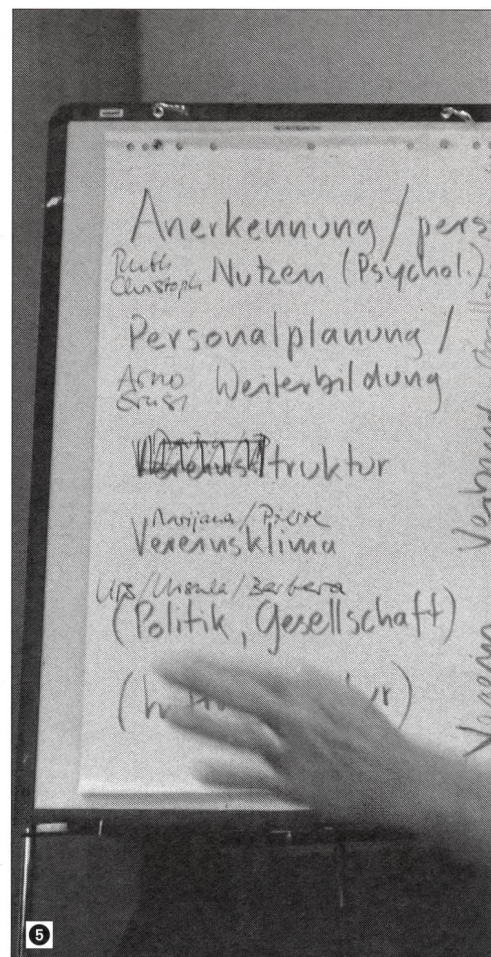 Anerkennung / pers
Ruth
Christoph Nutzen (Psychol.)
Personalplanung /
Arno
Ernst Weiterbildung
truktur
Marijana / Pierre
Vereinsklima
Urs / Ursula / Barbara
(Politik, Gesellschaft)
Verein
Verband
5